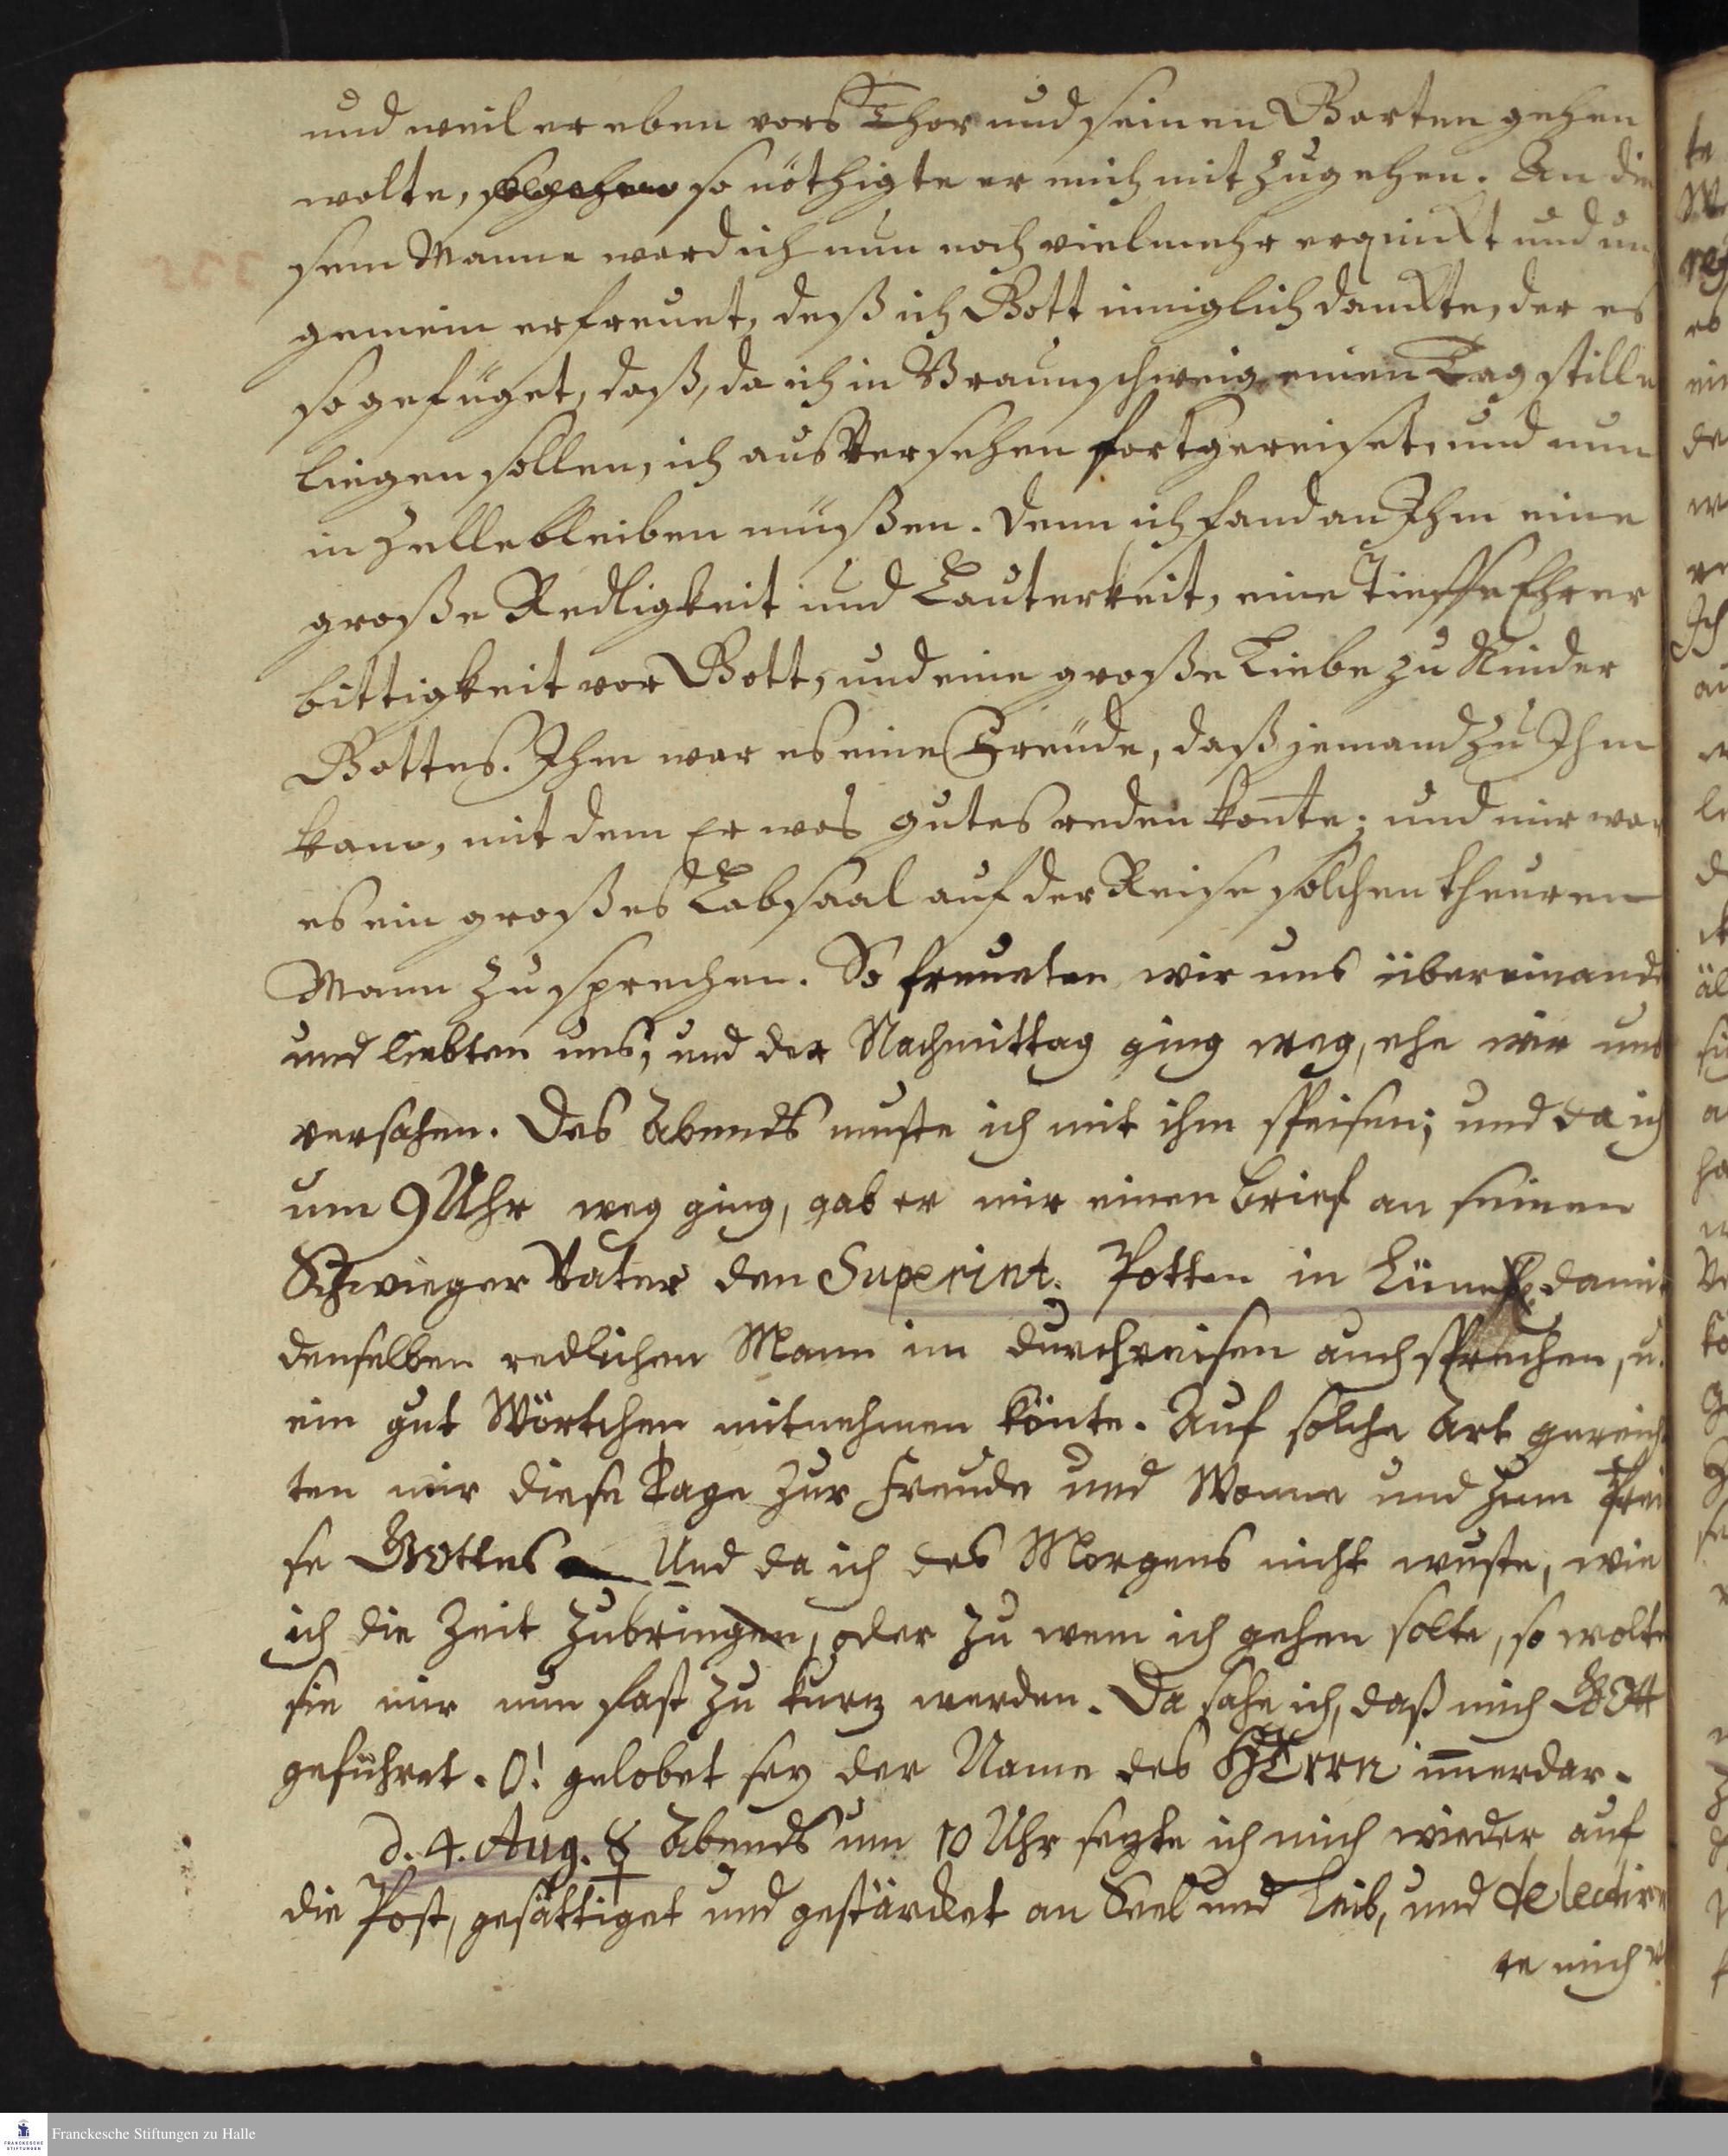 und weil er eben vors Thor und seinen Garten gehen
wolte, so nöthigte er mich mit zu gehen. An die
sem Manne ward ich nun noch vielmehr erquickt und un
gemein erfreuet, daß ich Gott inniglich danckte, der es
so gefüget, daß, da ich in Braunschweig einen Tag stille
liegen sollen, ich aus Versehen fortgereiset, und nun
in Zelle bleiben müßen. Denn ich fand an Ihm eine
große Redligkeit und Lauterkeit, eine Tieffe Ehrer
bittigkeit vor Gott, und eine große Liebe zu Kinder
Gottes. Ihm war es eine Freude, daß jemand zu Ihm
kam, mit dem Er was gutes reden konte; und mir war
es ein großes Labsaal auf der Reise solchen theuren
Mann zu sprechen. So freueten wir uns übereinande
und liebten uns; und der Nachmittag ging weg, ehe wir uns
versahen. Des Abends muste ich mit ihm speisen; und da ich
um 9 Uhr weg ging, gab er mir einen Brief an seinen
Schwieger Vater den Superint. Potten in damit
denselben redlichen Mann im durchreisen auch sprechen, u.
ein gut Wörtchen mitnehmen könte. Auf solche Art gereich
ten mir diese Tage zur Freude und Wonne und zum Prei
se Gottes Und da ich des Morgens nicht wuste, wie
ich die Zeit zubringen, oder zu wem ich gehen solte, so wolte
sie mir nun fast zu kurtz werden. Da sahe ich, daß mich GOtt
geführet. O! gelobet sey der Name des HErrn im̄erdar.
d. 4. Aug. ☿ Abends um 10 Uhr setzte ich mich wieder auf
die Post, gesättiget und gestärcket an Seel und Leib, und delectire
te mich
Franckesche Stiftungen zu Halle